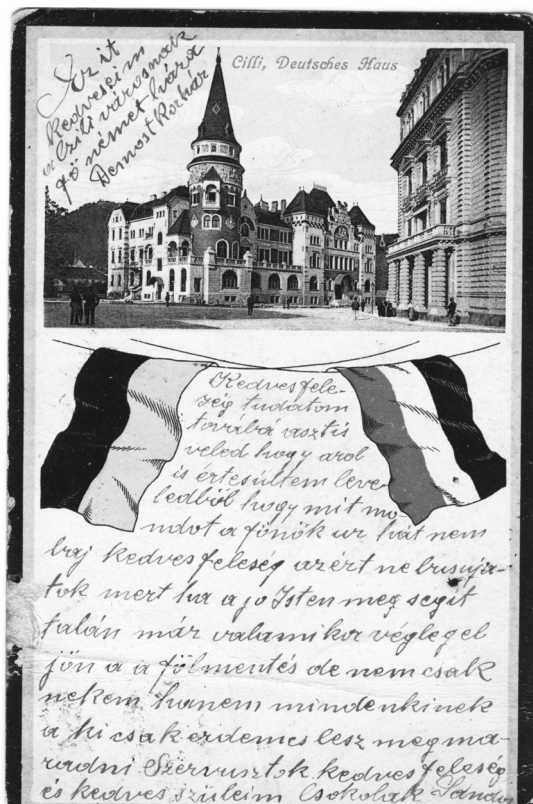 Ez it
kedveseim
a Czili városnak
fő német háza
Cilli, Deutsches Haus
Kedves fele-
ség tudatom
továbá asztis
veled hogy arol
is értesültem leve-
ledből hogy mit mo-
ndot a főnök ur hát nem
baj kedves feleség azért ne busuja-
tok mert ha a jo Isten meg segit
talán már valamikor véglegel
jön a a fölmentés de nem csak
nekem hanem mindenkinek
a ki csak érdemes lesz megma-
radni Szervusztok kedves feleség
és kedves szüleim Csokolak Sándor